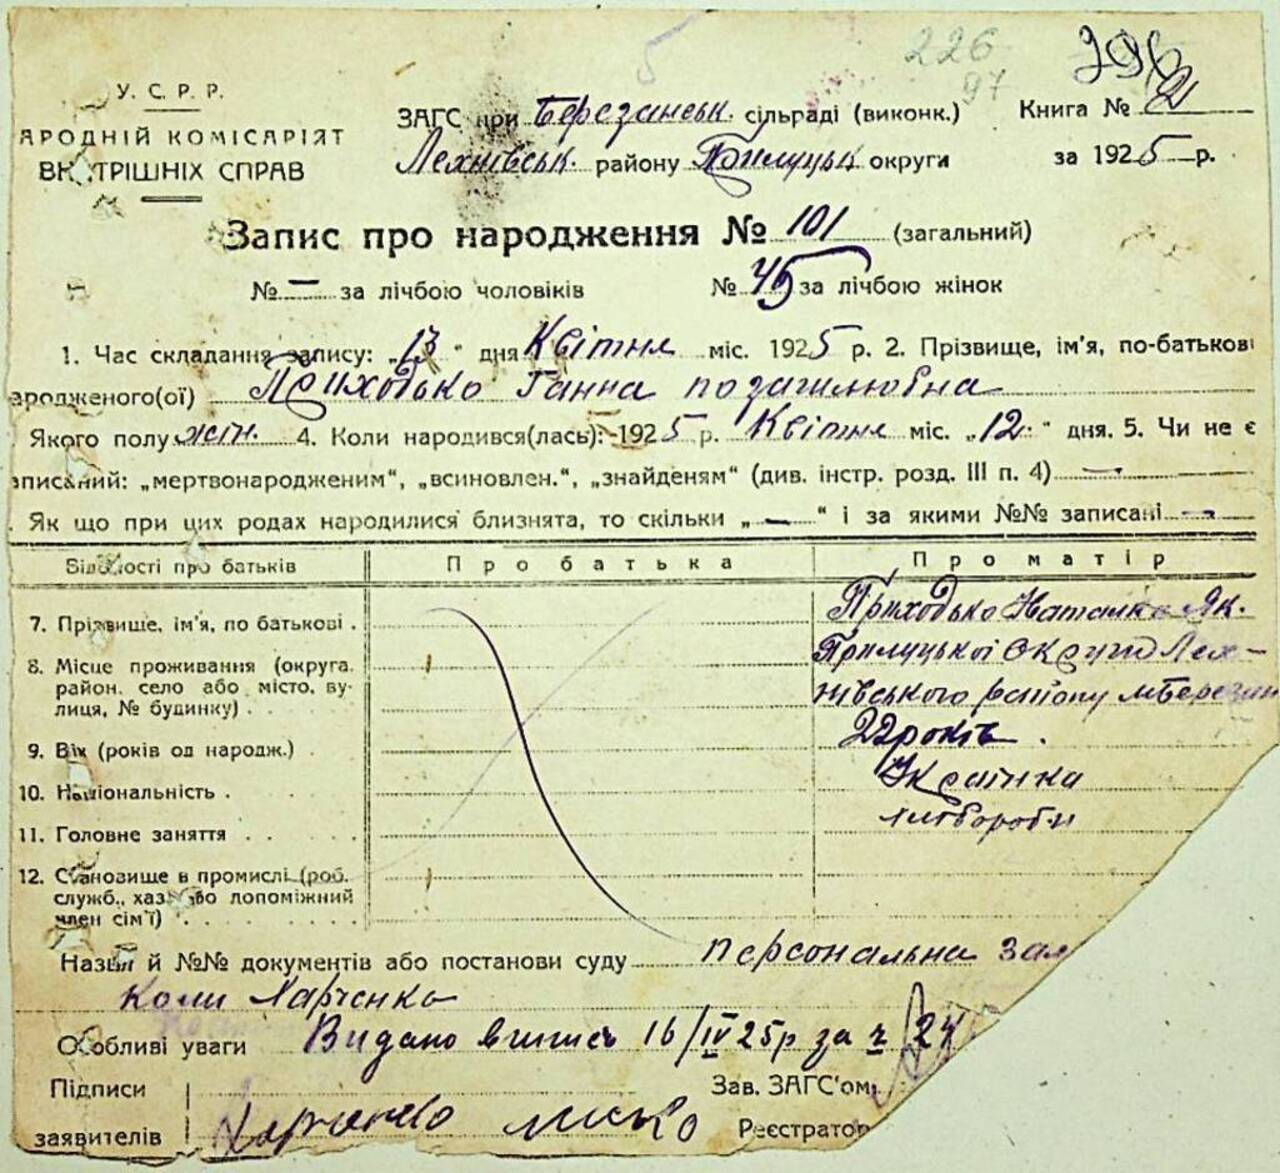 5
226
97
296
У. С. Р. Р.
АРОДНІЙ КОМІСАРІЯТ
ВНУТРІШНІХ СПРАВ
ЗАГС при Березанськ. сільраді (виконк.)
Лехнівськ. району Прилуцьк округи
Книга № 2
за 1925 р.
Запис про народження № 101 (загальний)
№ — за лічбою чоловіків
№ 45 за лічбою жінок
1. Час складання запису: „13“ дня Квітня міс. 1925 р. 2. Прізвище, ім'я, по-батькові
ародженого(ої) Приходько Ганна позашлюбна
Якого полу жін. 4. Коли народився(лась): 1925 р. Квітня міс. „12“ дня. 5. Чи не є
аписаний: „мертвонародженим“, „всиновлен.“, „знайденям“ (див. інстр. розд. III п. 4) —
. Як що при цих родах народилися близнята, то скільки „—“ і за якими №№ записані —
Відомості про батьків
Про батька
Про матір
7. Прізвище, ім'я, по батькові .
Приходько Наталка Як.
8. Місце проживання (округа, район, село або місто, вулиця, № будинку) . .
Прилуцької Округи Лех-
нівського району м Березан
9. Вік (років од народж.) .
22 років .
10. Національність .
Українка
11. Головне заняття . . . .
хлібороби
12. Становище в промислі (роб. служб., хаз. або допоміжний член сім'ї) . . . . .
Назва й №№ документів або постанови суду персональна зая
Харченко
Особливі уваги Видано випись 16/IV 25р за ч 24
Підписи
заявителів
Харченко
Зав. ЗАГС'ом
Реєстратор